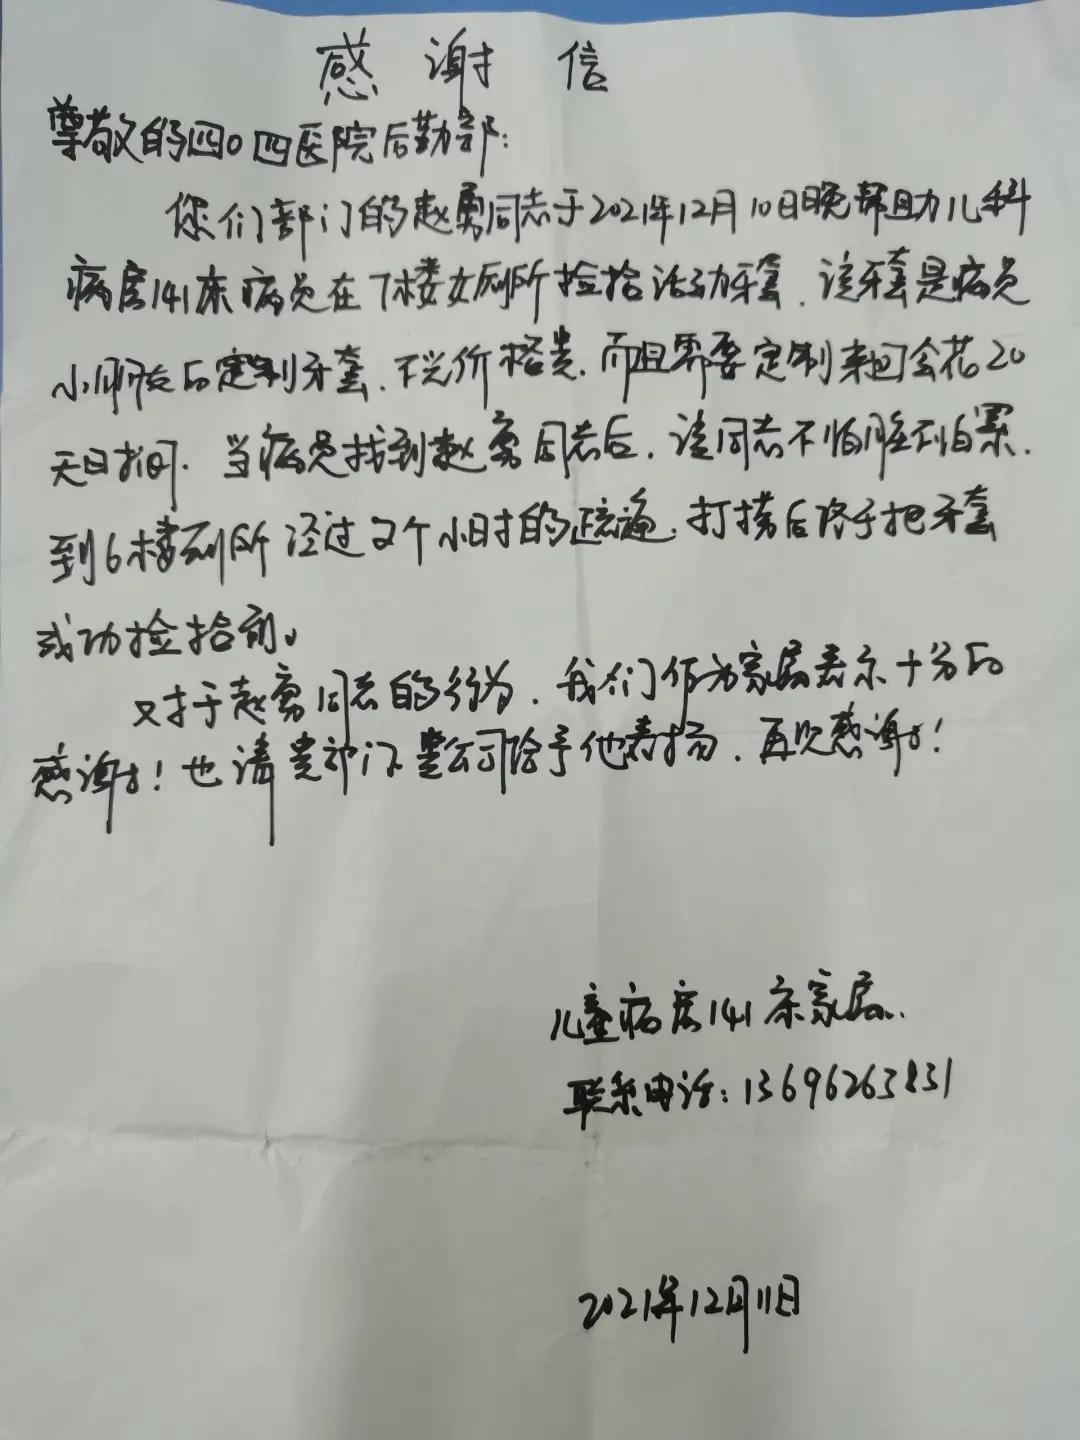 感谢信
尊敬的四0四医院后勤部:
您们部门的赵勇同志于2021年12月10日晚帮助儿科
病房141床病员在7楼女厕所捡拾活动牙套.该牙套是病员
小 后定制牙套.不光价格贵.而且需要定制来回会花20
天时间.当病员找到赵勇同志后.该同志不怕脏不怕累.
到6楼厕所经过2个小时的疏通.打捞后终于把牙套
成功捡拾到。
对于赵勇同志的行为.我们作为家属表示十分的
感谢!也请贵部门贵公司给予他表扬.再次感谢!
儿童病房141床家属.
联系电话:13696263831
2021年12月11日